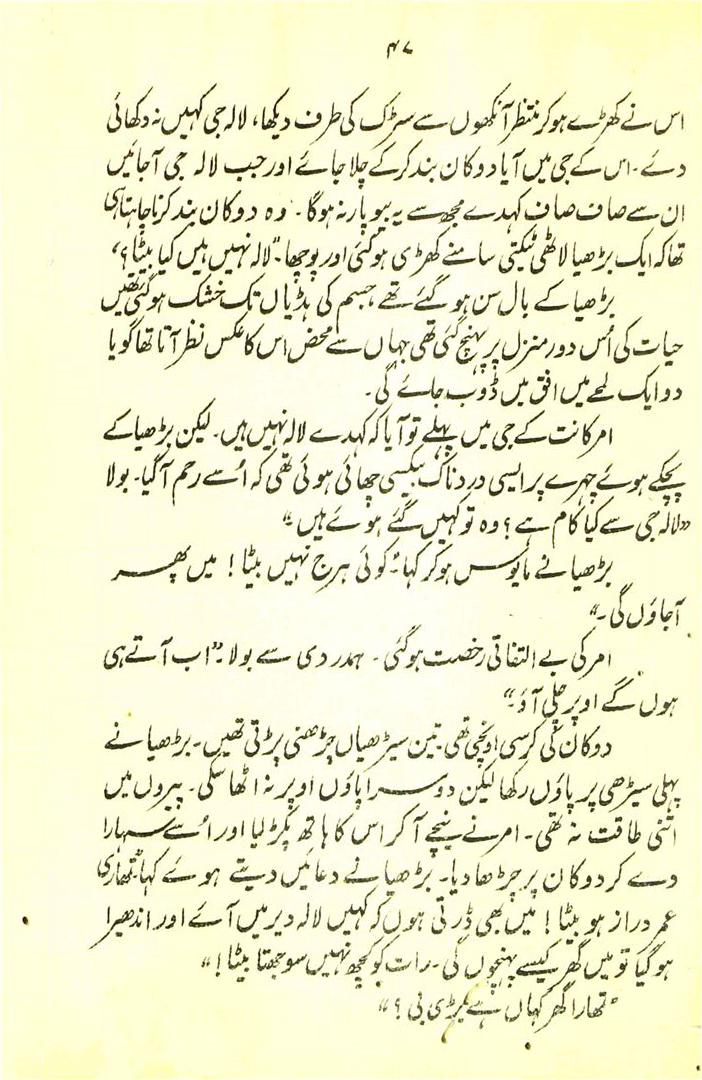 ۴۷
اس نے کھڑے ہو کر منتظر آنکھوں سے سڑک کی طرف دیکھا، لالہ جی کہیں نہ دکھائی
دئے۔ اس کے جی میں آیا دوکان بند کر کے چلا جائے اور جب لالہ جی آجائیں
ان سے صاف صاف کہدے مجھ سے یہ بیوپار نہ ہوگا۔ وہ دوکان بند کرنا چاہتا ہی
تھا کہ ایک بڑھیا لاٹھی ٹیکتی سامنے کھڑی ہوگئی اور پوچھا۔ "لالہ نہیں ہیں کیا بیٹا؟"
بڑھیا کے بال سن ہو گئے تھے، جسم کی ہڈیاں تک خشک ہوگئی تھیں
حیات کی اُس دور منزل پر پہنچ گئی تھی جہاں سے محض اس کا عکس نظر آتا تھا گویا
دو ایک لمحے میں افق میں ڈوب جائے گی۔
امرکانت کے جی میں پہلے تو آیا کہ کہدے لالہ نہیں ہیں۔ لیکن بڑھیا کے
پچکے ہوئے چہرے پر ایسی دردناک بیکسی چھائی ہوئی تھی کہ اُسے رحم آگیا۔ بولا
"لالہ جی سے کیا کام ہے؟ وہ تو کہیں گئے ہوئے ہیں۔"
بڑھیا نے مایوس ہو کر کہا۔ "کوئی ہرج نہیں بیٹا! میں پھر
آجاؤں گی۔"
امر کی بے التفاتی رخصت ہوگئی۔ ہمدردی سے بولا۔ "اب آتے ہی
ہوں گے اوپر چلی آؤ۔"
دوکان کی کرسی اونچی تھی۔ تین سیڑھیاں چڑھنی پڑتی تھیں۔ بڑھیا نے
پہلی سیڑھی پر پاؤں رکھا لیکن دوسرا پاؤں اوپر نہ اٹھا سکی۔ پیروں میں
اتنی طاقت نہ تھی۔ امر نے نیچے آ کر اس کا ہاتھ پکڑ لیا اور اُسے سہارا
دے کر دوکان پر چڑھا دیا۔ بڑھیا نے دعائیں دیتے ہوئے کہا "تمھاری
عمر دراز ہو بیٹا! میں بھی ڈرتی ہوں کہ کہیں لالہ دیر میں آئے اور اندھیرا
ہوگیا تو میں گھر کیسے پہنچوں گی۔ رات کو کچھ نہیں سوجھتا بیٹا!"
"تمھارا گھر کہاں ہے بڑی بی؟"